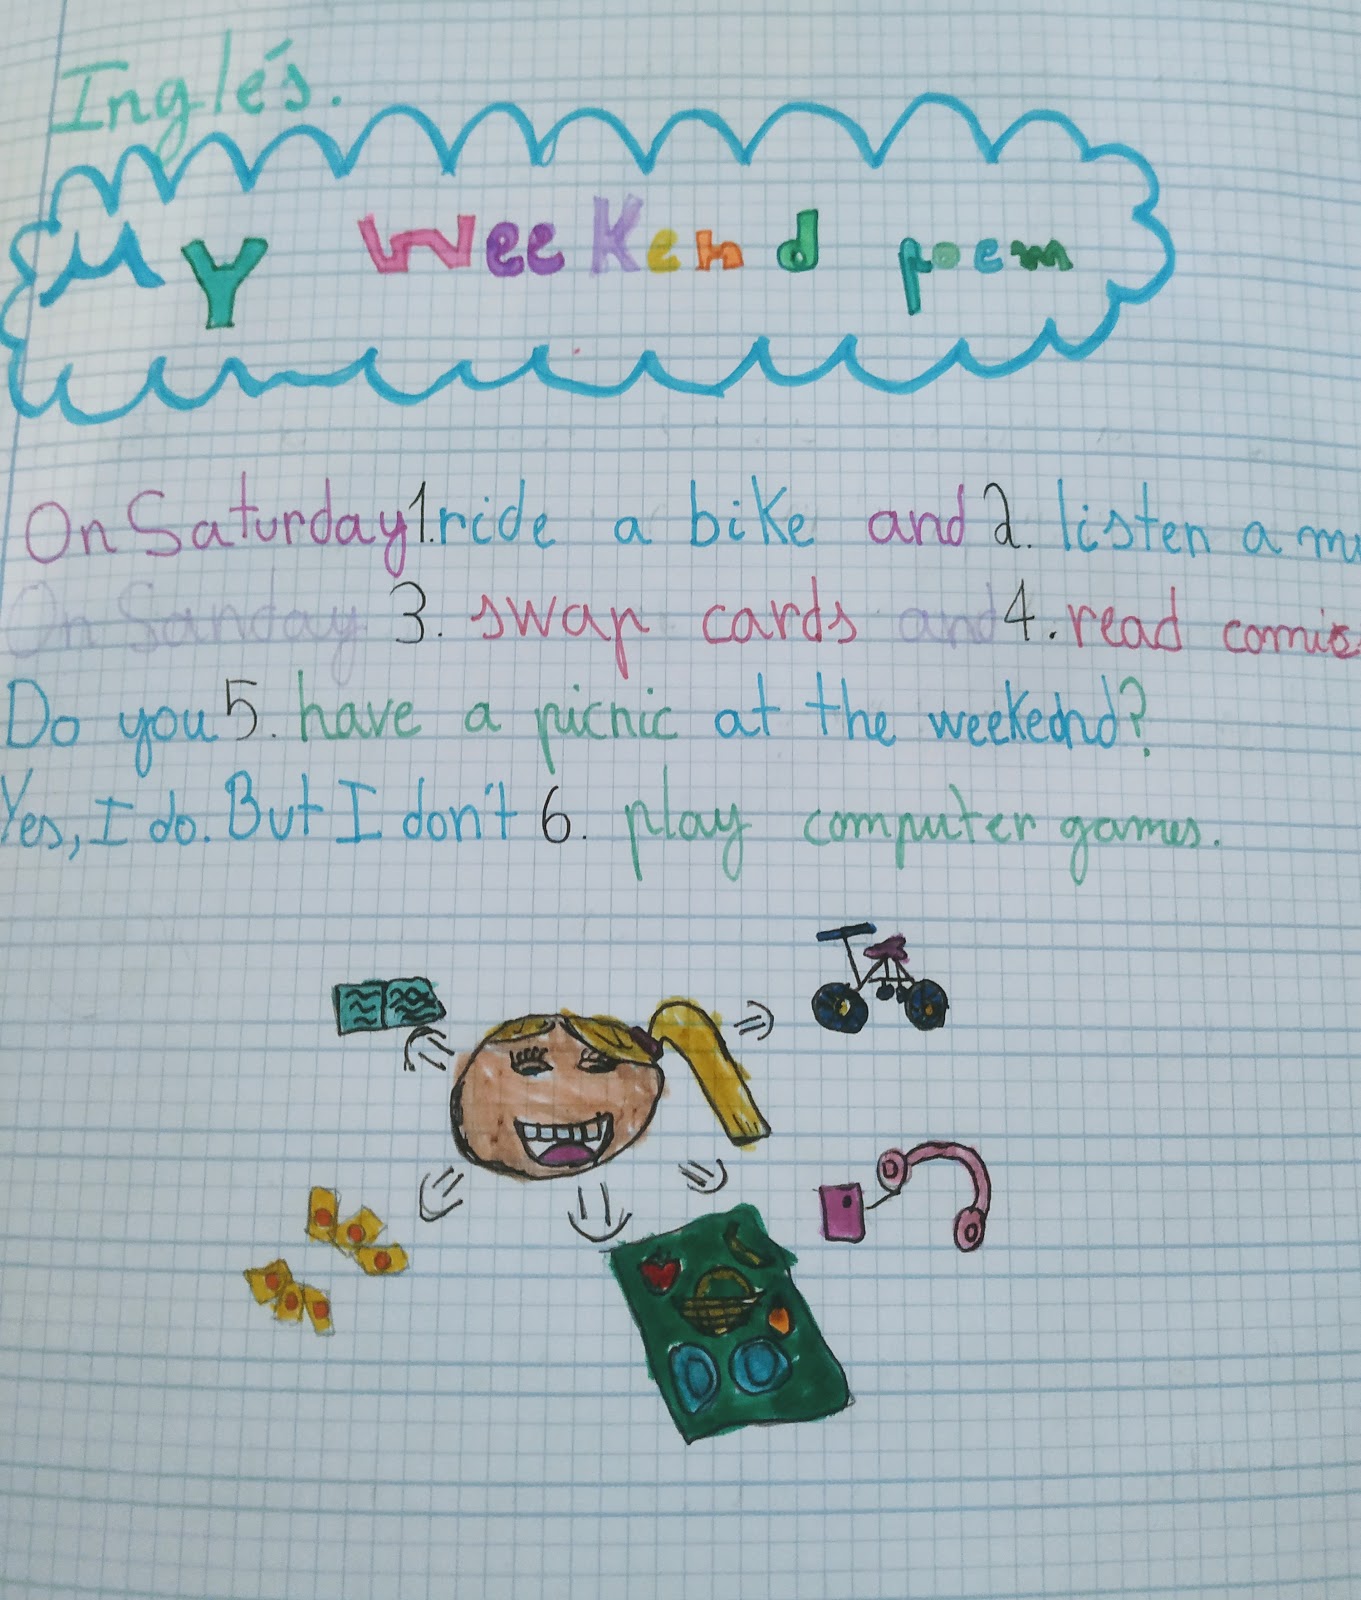 Inglés.
My Weekend poem
On Saturday 1. ride a bike and 2. listen a
On Sanday 3. swap cards and 4. read comics
Do you 5. have a picnic at the weekednd?
Yes, I do. But I don't 6. play computer games.